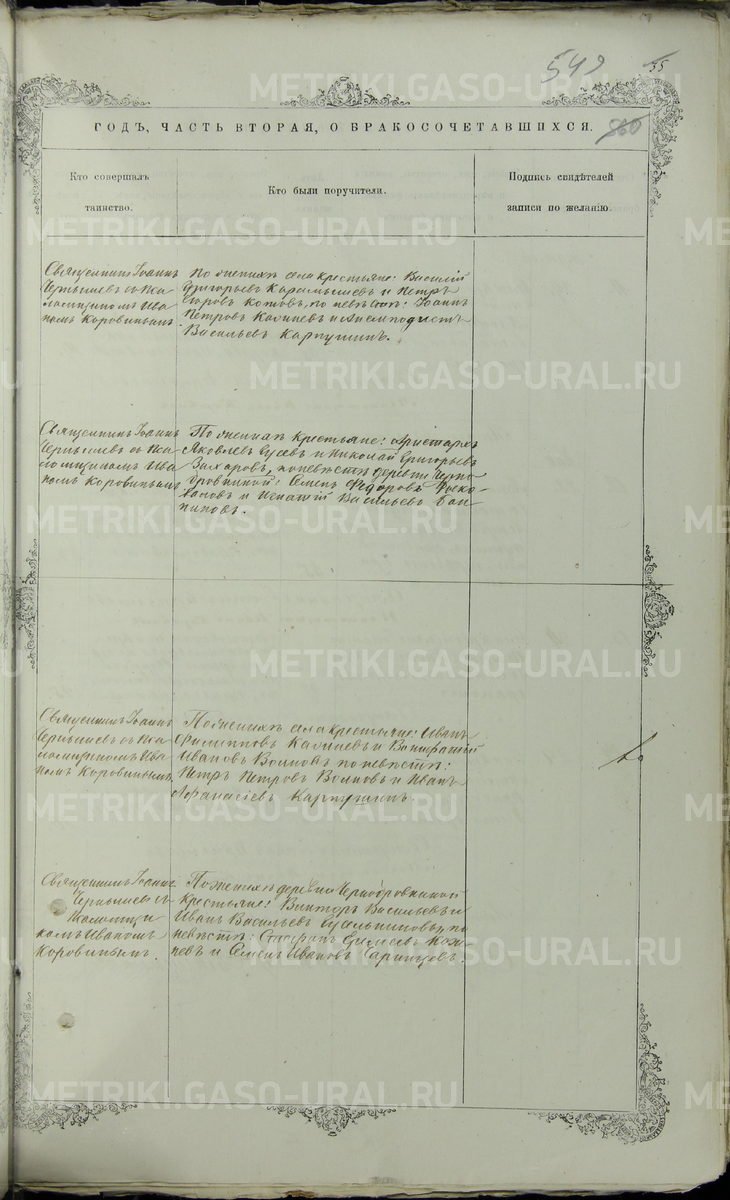 549
55
METRIKI.GASO-URAL.RU
ГОДЪ, ЧАСТЬ ВТОРАЯ, О БРАКОСОЧЕТАВШИХСЯ.
Кто совершалъ таинство.
Кто были поручители.
Подпись свидѣтелей записи по желанію.
METRIKI.GASO-URAL.RU
Священникъ Іоаннъ
Чернышевъ съ Пса-
ломщикомъ Ива-
номъ Коровинымъ
По женихѣ села крестьяне: Василій
Григорьевъ и Петръ
Котовъ, по невѣстѣ: Іоаннъ
Петровъ Калачевъ и Анемподистъ
Васильевъ Карпушинъ.
METRIKI.GASO-URAL.RU
Священникъ Іоаннъ
Чернышевъ съ Пса-
ломщикомъ Ива-
номъ Коровинымъ
По женихѣ крестьяне: Аристархъ
Яковлевъ Гусевъ и Николай Григорьевъ
Захаровъ, по невѣстѣ деревни Черно-
бровкиной: Семенъ Федоровъ
и Игнатій Васильевъ
METRIKI.GASO-URAL.RU
METRIKI.GASO-URAL.RU
Священникъ Іоаннъ
Чернышевъ съ Пса-
ломщикомъ Ива-
номъ Коровинымъ
По женихѣ села крестьяне: Иванъ
Филипповъ Калачевъ и Вонифатій
Ивановъ Волковъ по невѣстѣ:
Петръ Петровъ Волковъ и Иванъ
Афанасіевъ Карпушинъ.
METRIKI.GASO-URAL.RU
Священникъ Іоаннъ
Чернышевъ съ
Псаломщи-
комъ Иваномъ
Коровинымъ.
По женихѣ деревни Чернобровкиной
крестьяне: Викторъ Васильевъ и
Иванъ Васильевъ по
невѣстѣ:
и Семенъ Ивановъ
METRIKI.GASO-URAL.RU
METRIKI.GASO-URAL.RU